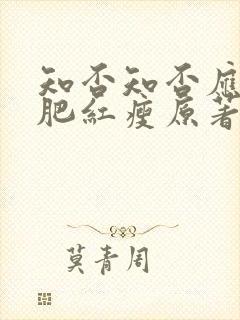 知否知否應
肥紅瘦原著
莫青周